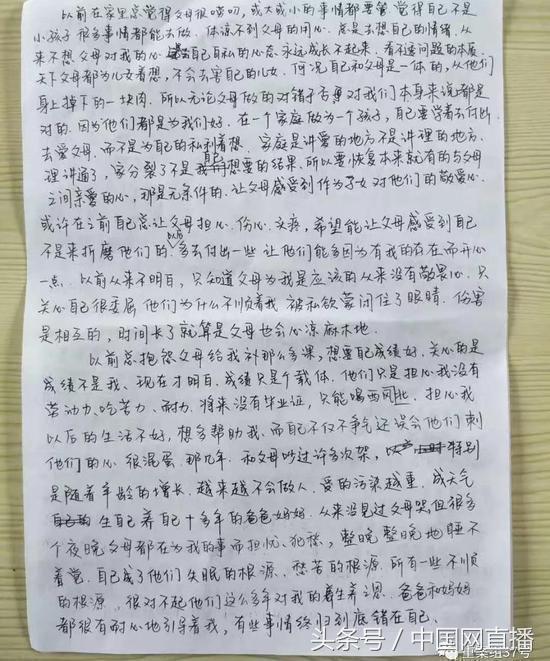 以前在家里总觉得父母很唠叨，或大或小的事情都要管。觉得自己不是
小孩子很多事情都能去做，体凉不到父母的用心。总是去想自己的情绪，从
来不想父母对我的心 自己自私的心态永远成长不起来，看不透问题的本质。
天下父母都为儿女着想，不会去害自己的儿女。何况自己和父母是一体的，从他们
身上掉下的一块肉。所以无论父母做的对错于否再对我们本身来说都是
对的。因为他们都是为我们好。在一个家庭做为一个孩子，自己要学着去付出
去爱父母，而不是为自己的私利着想。家庭是讲爱的地方不是讲理的地方、
理讲通了，家分裂了不是自己想要的结果。所以要恢复本来就有的与父母
之间亲爱的心，那是无条件的。让父母感受到作为子女对他们的敬爱心。
或许在之前自己总让父母担心、伤心、头疼，希望能让父母感受到自己
不是来折磨他们的。多去付出一些 让他们能多因为有我的存在而开心
一点。以前从来不明白，只知道父母为我是应该的从来没有敬畏心。只
关心自己很委屈，他们为什么不顺着我 被私欲蒙闭住了眼睛。伤害
是相互的，时间长了就算是父母也会心凉麻木地.
以前总抱怨父母给我补那么多课，想要自己成绩好。关心的是
成绩不是我。现在才明白，成绩只是个载体。他们只是担心我没有
劳动力、吃苦力、耐力。将来没有毕业证，只能喝西北风，担心我
以后的生活不好，想多帮助我。而自己不仅不争气还误会他们刺
他们的心。很混蛋。那几年，和父母吵过许多次架，特别
是随着年龄的增长。越来越不会做人。爱的污染越重。成天气
生自己养自己十多年的爸爸妈妈。从来没见过父母哭，但很多
个夜晚父母都在为我的事而担忧、犯愁，整晚整晚地睡不
着觉。自己成了他们失眠的根源、愁苦的根源。所有一些不顺
的根源。很对不起他们这么多年对我的养生养之恩。爸爸和妈妈
都很有耐心地引导着我，有些事情终归到底错在自己.
头条号／中国网直播
重案组37号